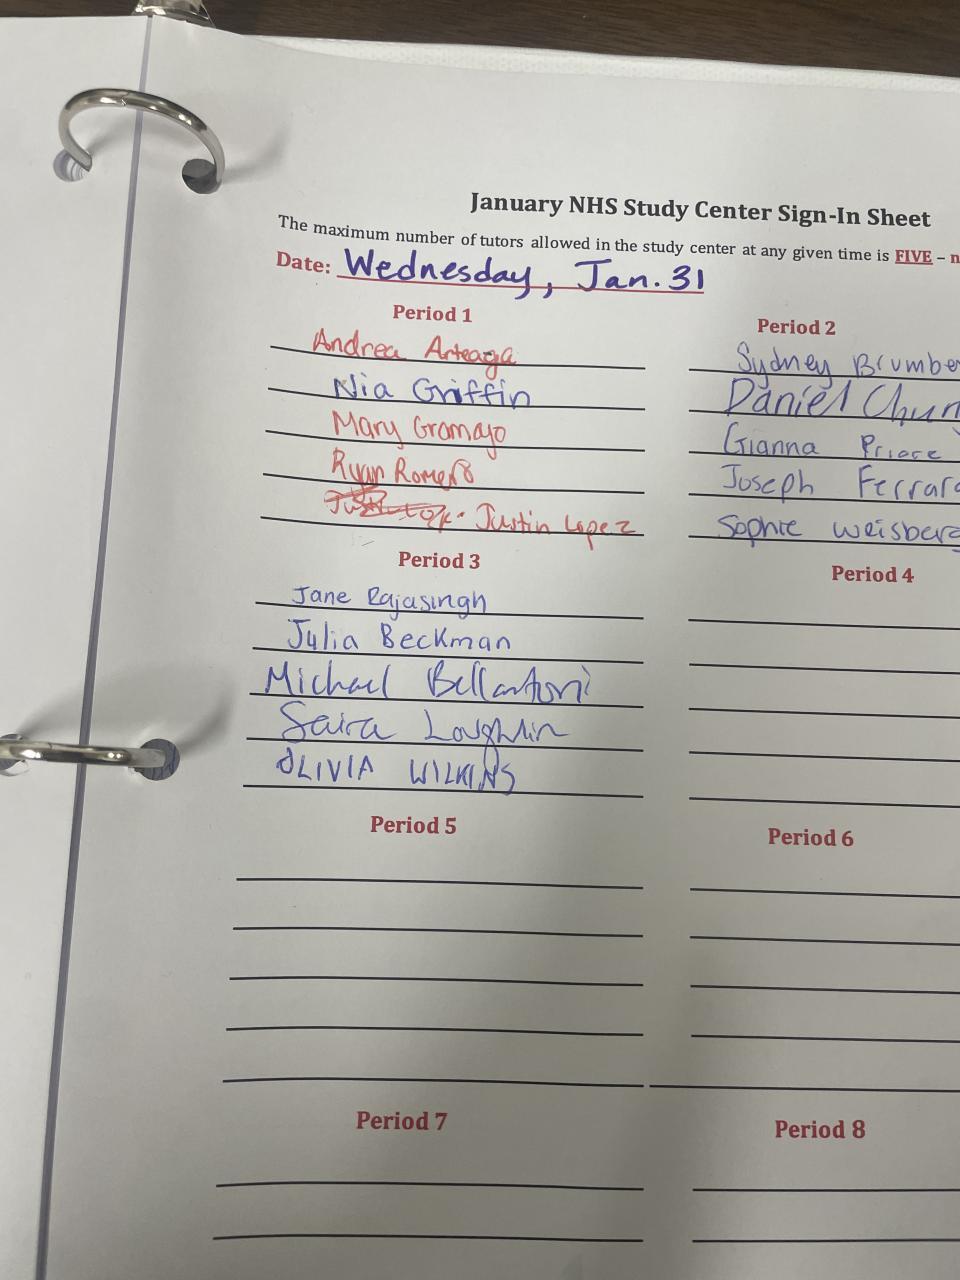 January NHS Study Center Sign-In Sheet
The maximum number of tutors allowed in the study center at any given time is FIVE – n
Date: Wednesday, Jan. 31
Period 1
Andrea Arteaga
Nia Griffin
Mary Gramajo
Ryan Romero
Justin Lopez
Period 2
Sydney Brumbe
Daniel Chun
Gianna Priore
Joseph Ferrara
Sophie Weisberg
Period 3
Jane Rajasingh
Julia Beckman
Michael Bellantoni
Saira Loughlin
OLIVIA WILKINS
Period 4
Period 5
Period 6
Period 7
Period 8